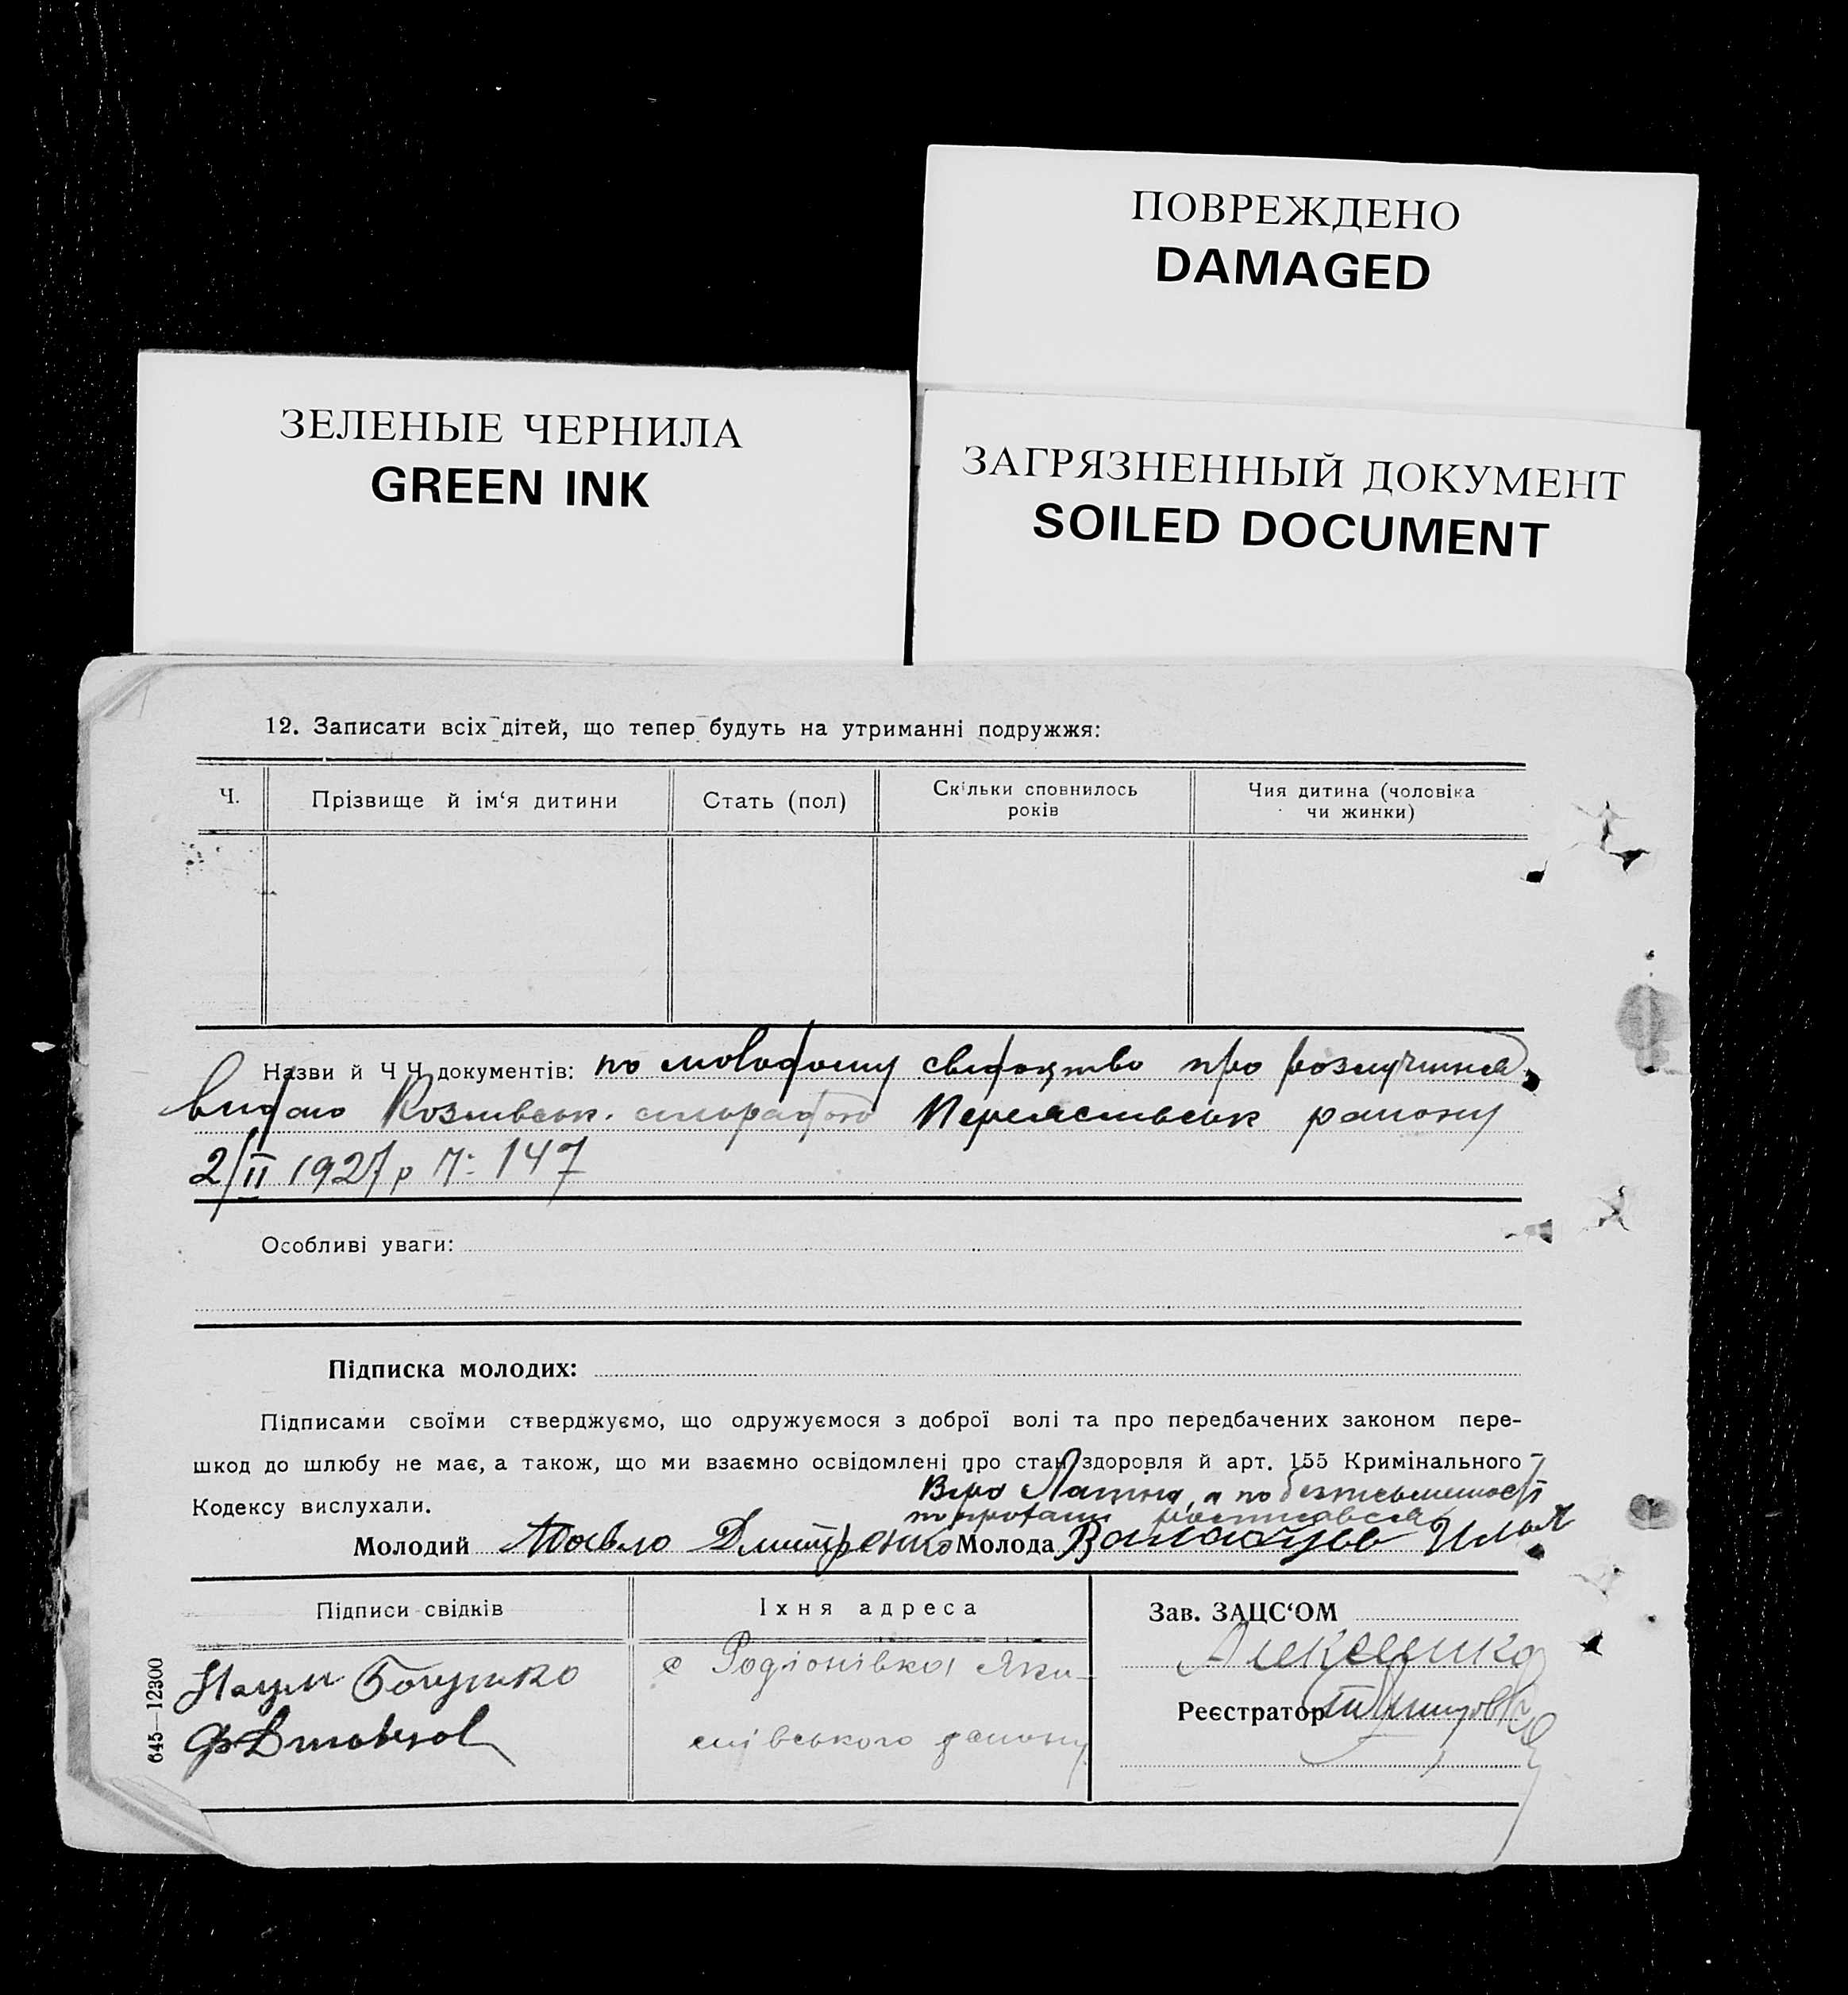 ПОВРЕЖДЕНО
DAMAGED
ЗЕЛЕНЫЕ ЧЕРНИЛА
GREEN INK
ЗАГРЯЗНЕННЫЙ ДОКУМЕНТ
SOILED DOCUMENT
12. Записати всіх дітей, що тепер будуть на утриманні подружжя:
Ч.
Прізвище й ім‘я дитини
Стать (пол)
Скільки сповнилось
років
Чия дитина (чоловіка
чи жинки)
Назви й Ч Ч документів: по молодому свидоцтво про
видано районну
2/II 1927 р №: 147
Особливі уваги:
Підписка молодих:
Підписами своїми стверджуємо, що одружуємося з доброї волі та про передбачених законом пере-
шкод до шлюбу не має, а також, що ми взаємно освідомлені про стан здоровля й арт. 155 Кримінального
Кодексу вислухали.
а по
Молодий Павло Дмитренко Молода
Підписи свідків
Їхня адреса
Зав. ЗАЦС‘ОМ
Наум
с Родіонівка Яки-
Алексеенко
Реєстратор
мівського району
645—12300